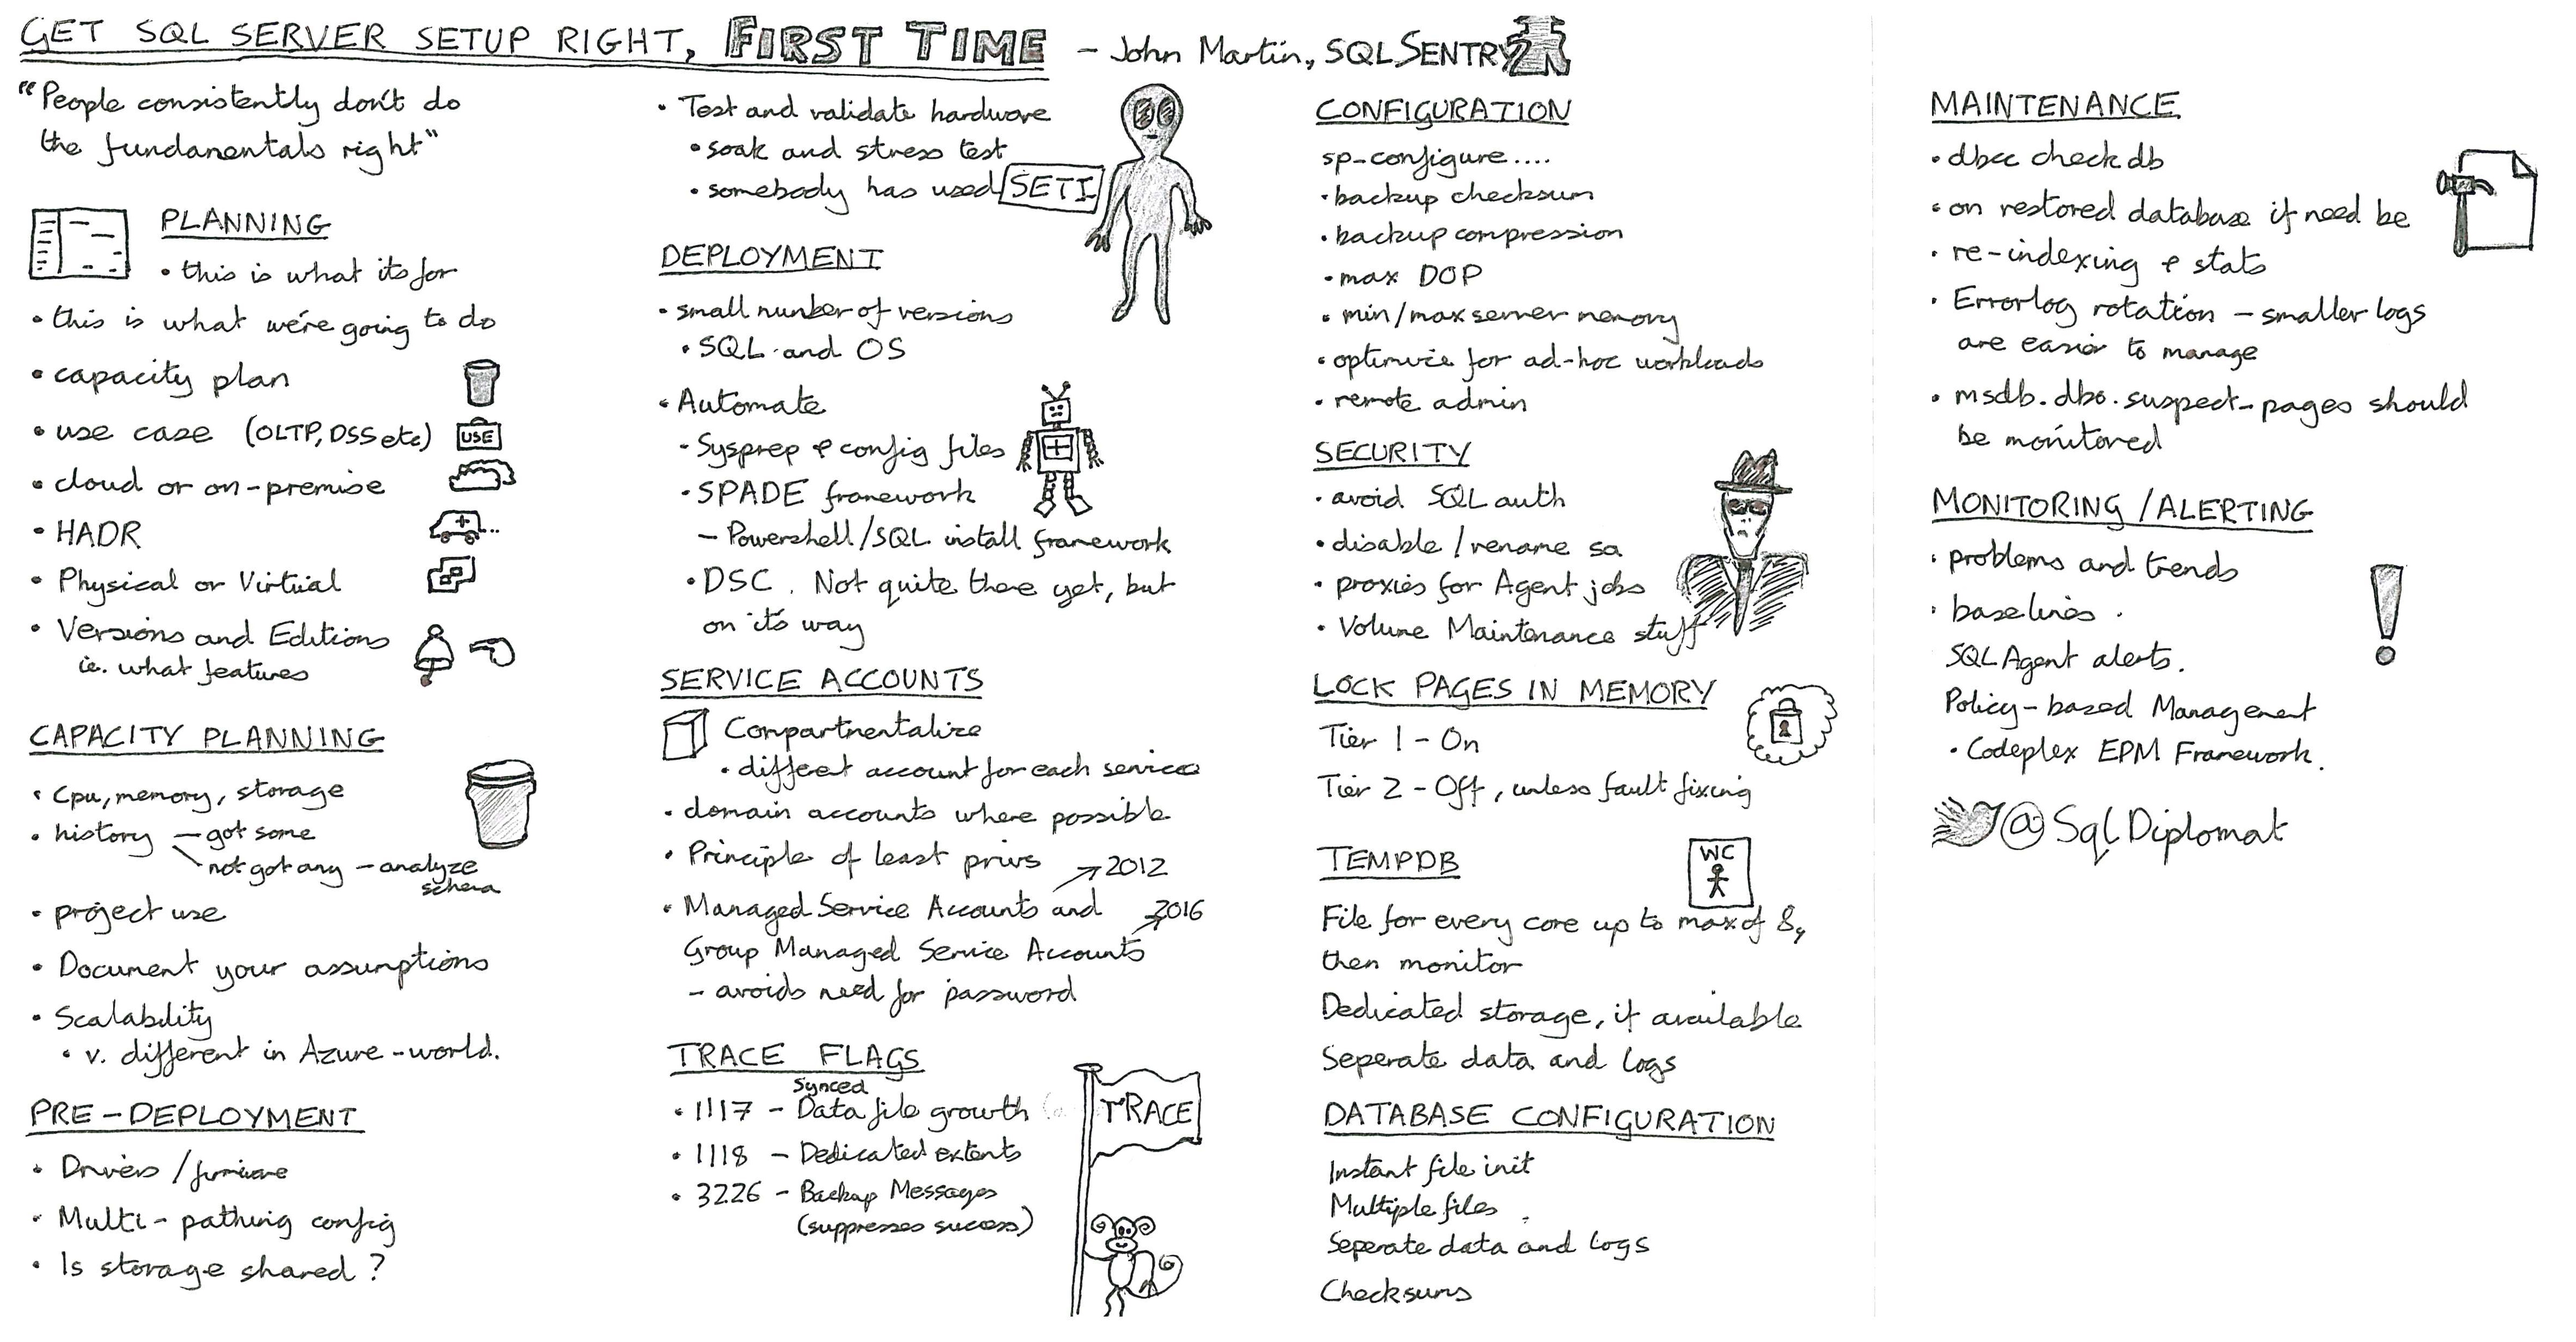 GET SQL SERVER SETUP RIGHT, FIRST TIME - John Martin, SQL SENTRY
"People consistently don't do
the fundamentals right"
PLANNING
• this is what its for
• this is what we're going to do
• capacity plan
• use case (OLTP, DSS etc)
USE
• cloud or on-premise
• HADR
• Physical or Virtual
• Versions and Editions
ie. what features
CAPACITY PLANNING
• Cpu, memory, storage
• history - got some
not got any - analyze
schema
• project use
• Document your assumptions
• Scalability
• v. different in Azure-world.
PRE-DEPLOYMENT
• Drivers / firmware
• Multi-pathing config
• Is storage shared?
• Test and validate hardware
• soak and stress test
• somebody has used SETI
DEPLOYMENT
• small number of versions
• SQL and OS
• Automate
• Sysprep & config files
• SPADE framework
- Powershell/SQL install framework
• DSC. Not quite there yet, but
on its way
SERVICE ACCOUNTS
Compartmentalize
• different account for each service
• domain accounts where possible
• Principle of least privs
2012
• Managed Service Accounts and
2016
Group Managed Service Accounts
- avoids need for password
TRACE FLAGS
Synced
• 1117 - Data file growth
• 1118 - Dedicated extents
• 3226 - Backup Messages
(suppresses success)
TRACE
CONFIGURATION
sp-configure....
• backup checksum
• backup compression
• max DOP
• min/max server memory
• optimize for ad-hoc workloads
• remote admin
SECURITY
• avoid SQL auth
• disable / rename sa
• proxies for Agent jobs
• Volume Maintenance stuff
LOCK PAGES IN MEMORY
Tier 1 - On
Tier 2 - Off, unless fault fixing
TEMPDB
WC
File for every core up to max of 8,
then monitor
Dedicated storage, if available
Seperate data and logs
DATABASE CONFIGURATION
Instant file init
Multiple files
Seperate data and logs
Checksums
MAINTENANCE
• dbcc checkdb
• on restored database if need be
• re-indexing & stats
• Errorlog rotation - smaller logs
are easier to manage
• msdb.dbo.suspect_pages should
be monitored
MONITORING / ALERTING
• problems and trends
• baselines.
SQL Agent alerts.
Policy-based Management
• Codeplex EPM Framework.
@SqlDiplomat